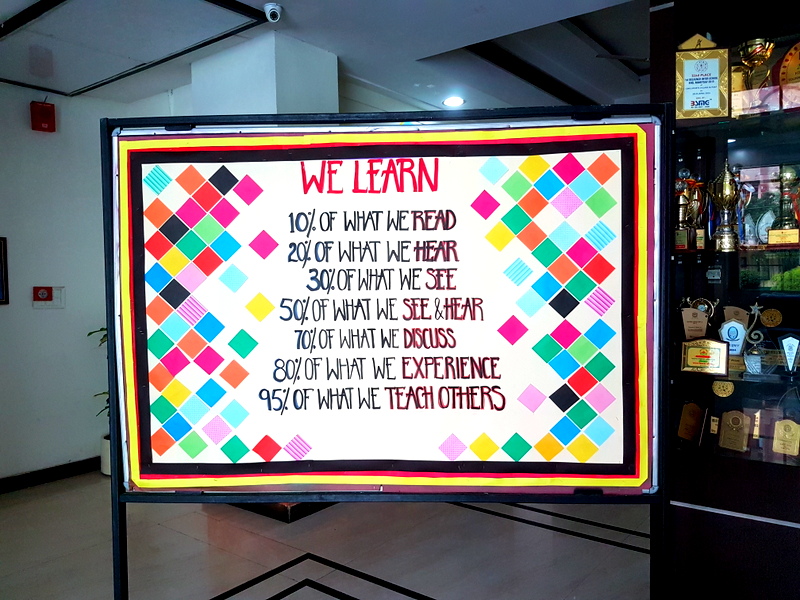 WE LEARN
10% OF WHAT WE READ
20% OF WHAT WE HEAR
30% OF WHAT WE SEE
50% OF WHAT WE SEE & HEAR
70% OF WHAT WE DISCUSS
80% OF WHAT WE EXPERIENCE
95% OF WHAT WE TEACH OTHERS